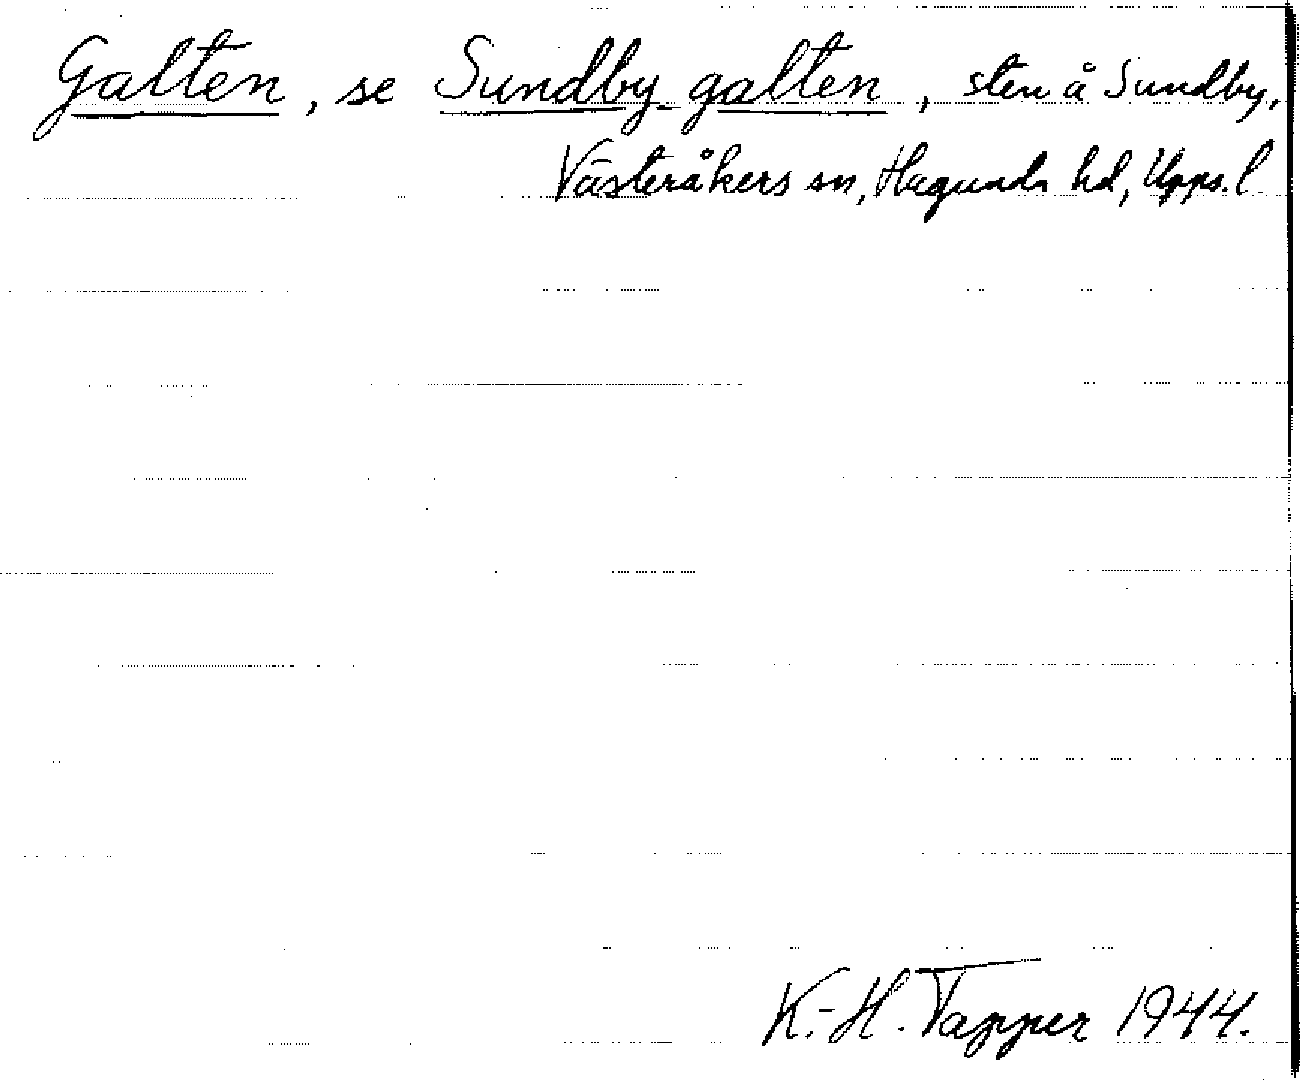 Galten, se Sundby-galten, sten å Sundby,
Västeråkers sn, Hagunda hd, Upps. l
K.-H. Tapper 1944.